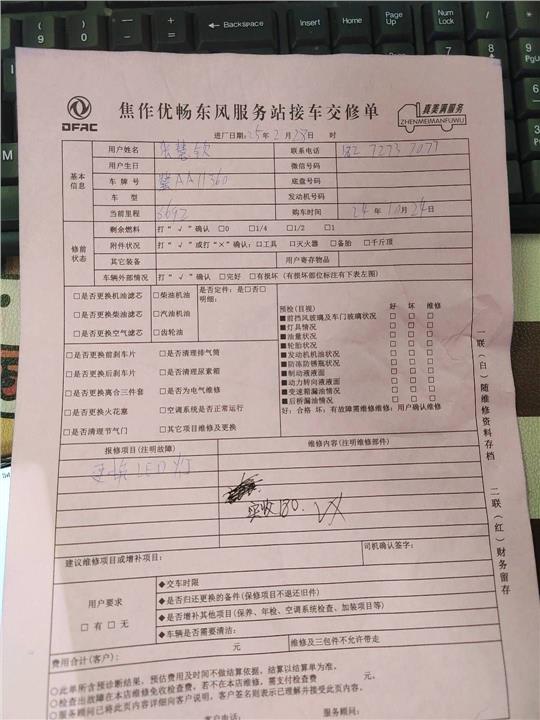 DFAC
焦作优畅东风服务站接车交修单
真美满服务
ZHENMEIMANFUWU
进厂日期:25年2月23日 时
基本信息
用户姓名 张慧钦 联系电话 182 7273 7077
用户生日 微信号码
车牌号 AA11360 底盘号码
车型 发动机号码
当前里程 8692 购车时间 24年10月24日
修前状态
剩余燃料 打“√”确认 □0 □1/4 □1/2 □1
附件状况 打“√”或打“×”确认: □工具 □灭火器 □备胎 □千斤顶
其它装备 用户寄存物品
车辆外部情况 打“√”确认 □完好 □有损坏(有损坏部位标注有下表左图)
□是否更换机油滤芯 □柴油机油 是否定件: 是□否□
明细:
□是否更换柴油滤芯 □汽油机油
□是否更换空气滤芯 □齿轮油
□是否更换前刹车片 □是否清理排气筒
□是否更换后刹车片 □是否清理尿素箱
□是否更换离合三件套 □是否为电气维修
□是否更换火花塞 □空调系统是否正常运行
□是否清理节气门 □其它项目维修及更换
预检(目视) 好 坏 维修
■前挡风玻璃及车门玻璃状况 □ □ □
■灯具情况 □ □ □
■油量状况 □ □ □
■轮胎状况 □ □ □
■发动机机油状况 □ □ □
■防冻防锈瓶状况 □ □ □
■制动液液面 □ □ □
■动力转向液液面 □ □ □
■变速箱漏油情况 □ □ □
■后桥漏油情况 □ □ □
好:合格 坏:有故障需维修维修:用户确认维修
报修项目(注明故障) 维修内容(注明维修部件)
更换LED灯
实收180.
建议维修项目或增补项目: 司机确认签字:
用户要求
□有 □无
◆交车时限
◆是否归还更换的备件(保修项目不退还旧件)
◆是否增补其他项目(保养、年检、空调系统检查、加装项目等)
◆车辆是否需要清洁:
费用合计(客户): 元 维修及三包件不允许带走
○此单所含预诊断结果,预估费用及时间不做结算依据,结算以结算单为准,
○检查出故障在本店维修免收检查费,若不在本店维修,需支付检查费 元。
○服务顾问已将此页内容详细向客户说明,客户签名则表示已理解并接受此页内容。
客户电话: 服务顾问:
一联(白)随维修资料存档
二联(红)财务留存